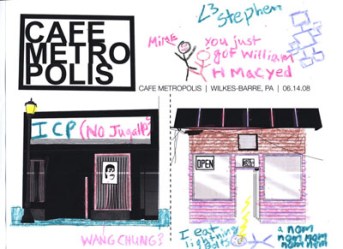 CAFE
METRO
POLIS
<3 Stephen
Mike
you just
got William
H Macyed
CAFE METROPOLIS | WILKES-BARRE, PA | 06.14.08
ICP (No Jugalos)
OPEN
I eat
lightning
WANG CHUNG?
nom
nom nom
nom nom